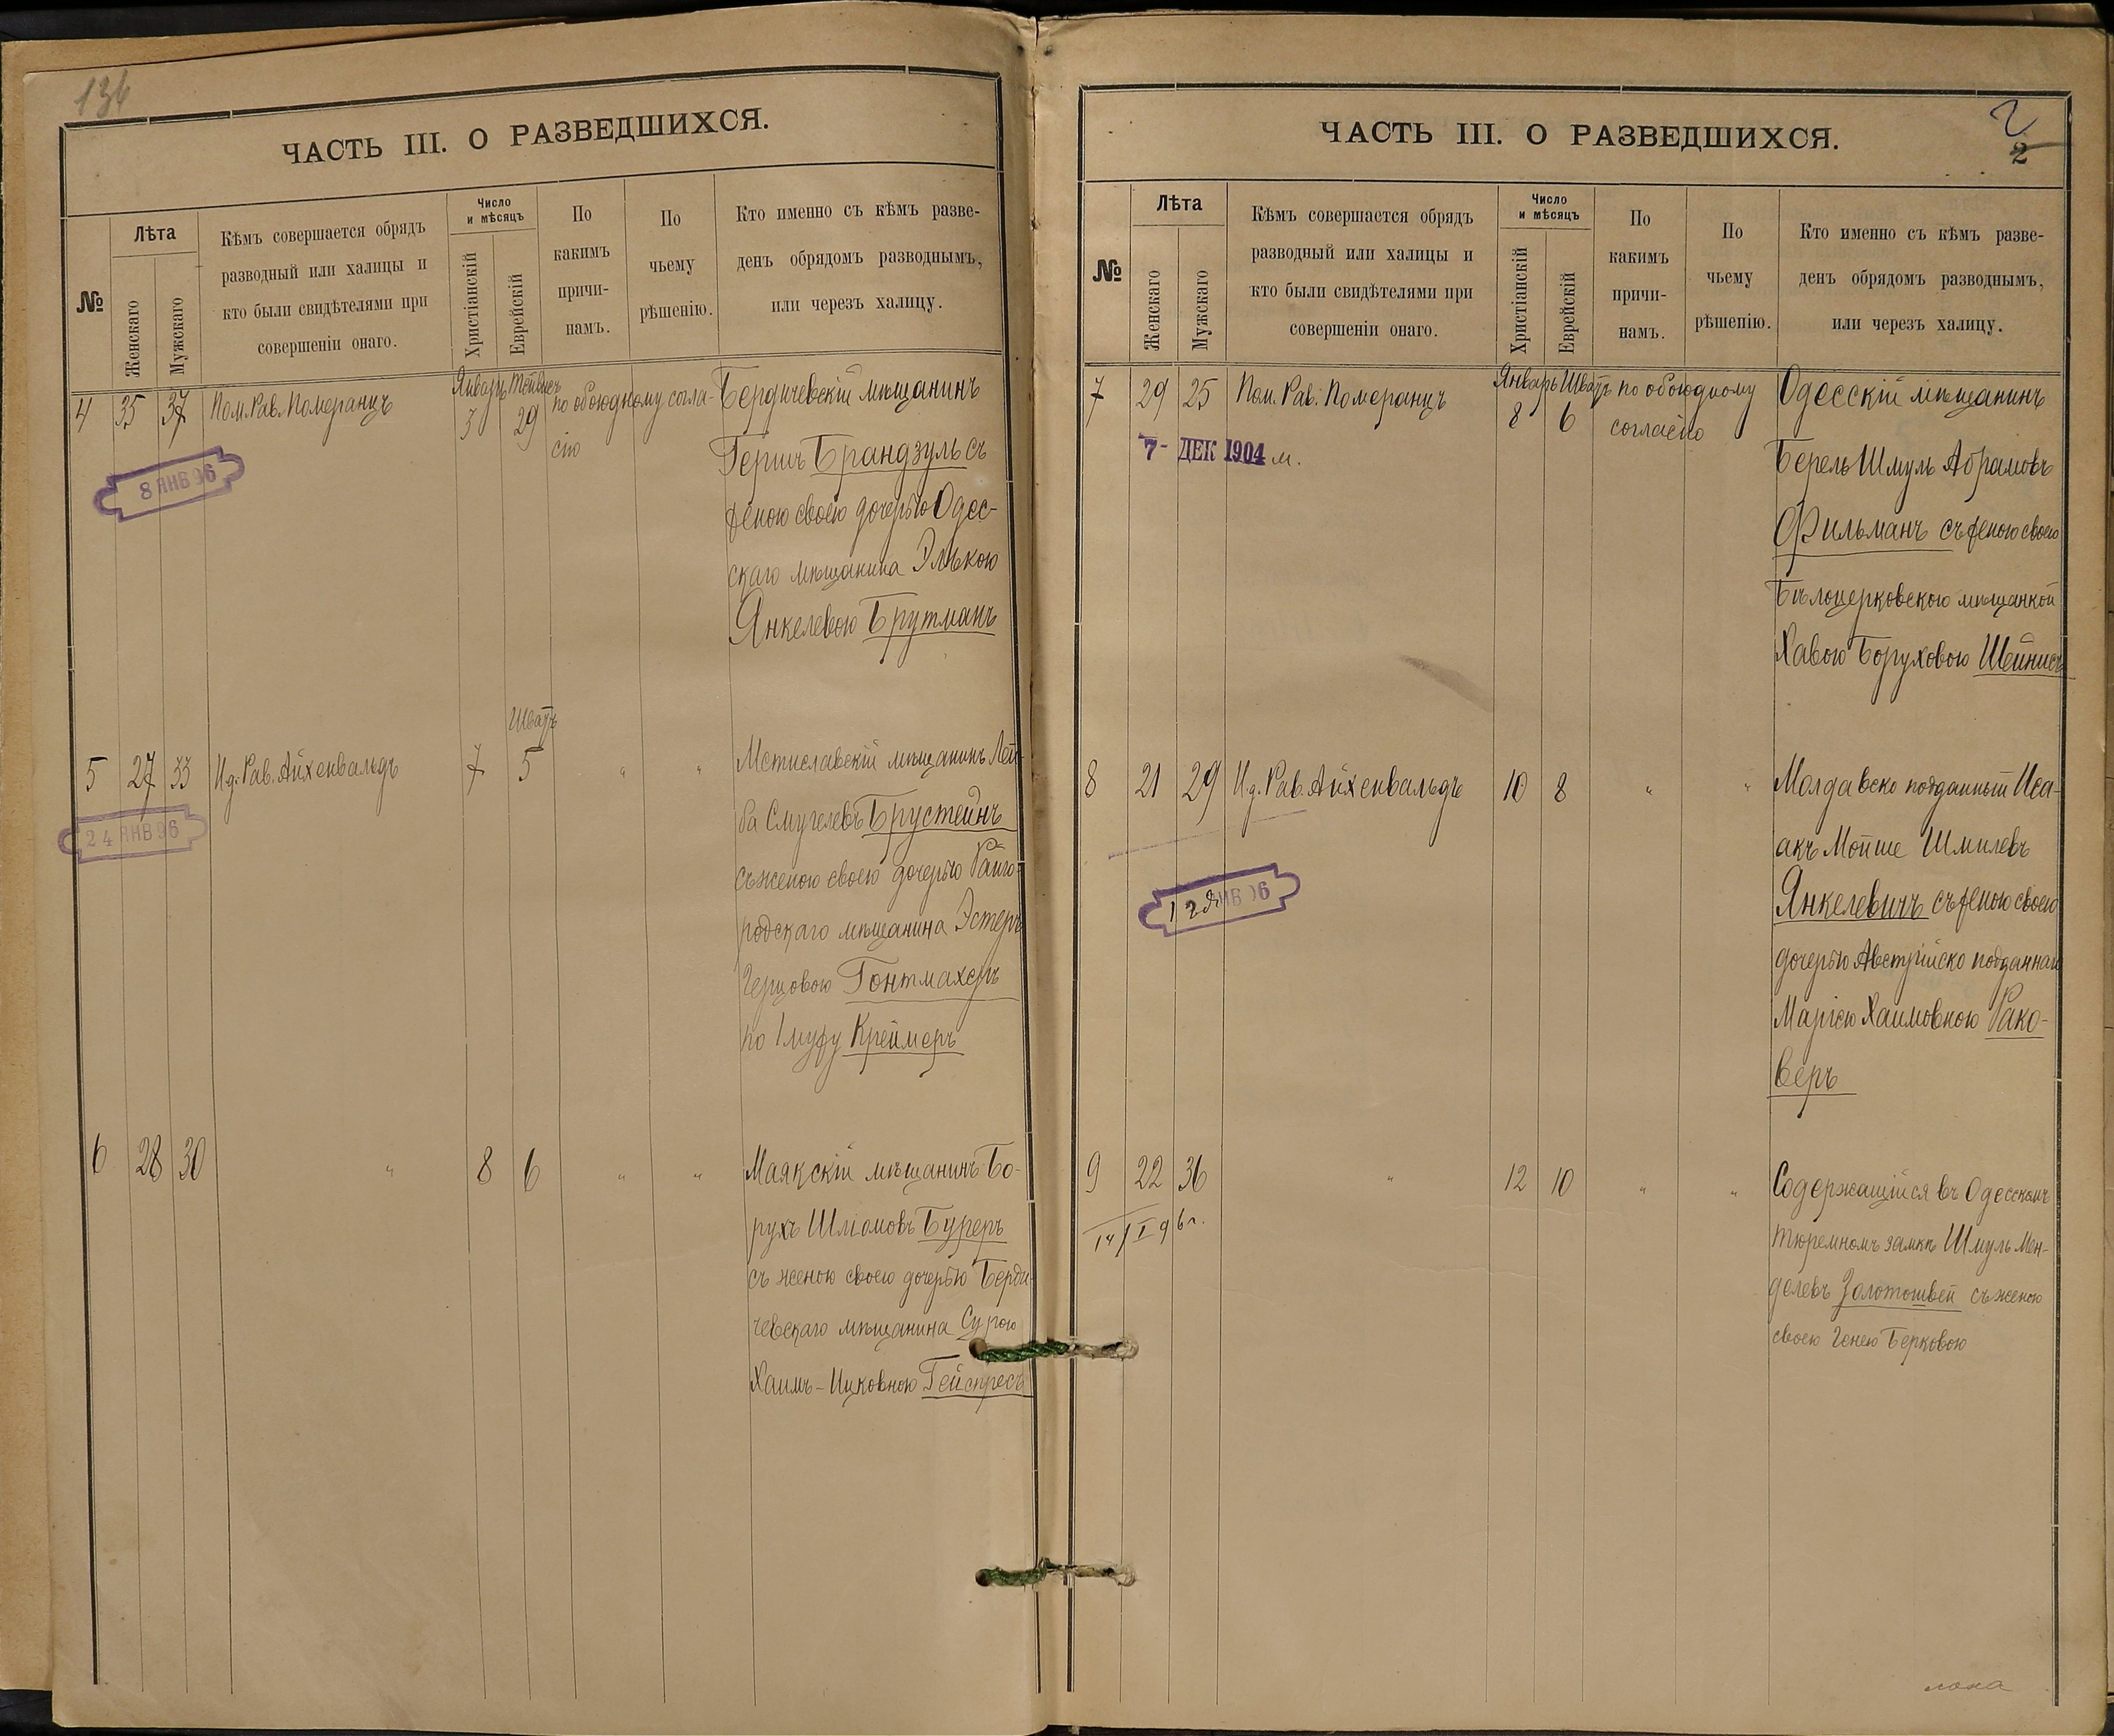 136
ЧАСТЬ III. О РАЗВЕДШИХСЯ.
№
Лѣта
Женскаго
Мужскаго
Кѣмъ совершается обрядъ
разводный или халицы и
кто были свидѣтелями при
совершеніи онаго.
Число
и мѣсяцъ
Христіанскій
Еврейскій
По
какимъ
причи-
намъ.
По
чьему
рѣшенію.
Кто именно съ кѣмъ разве-
денъ обрядомъ разводнымъ,
или черезъ халицу.
4 35 37 Пом. Рав. Померанцъ
Январь
3
29
по обоюдному согла-
сію
Бердичевскій мѣщанинъ
Гершъ Брандзуль съ
женою своею дочерью Одес-
скаго мѣщанина Элькою
Янкелевою Брутманъ
8 ЯНВ 96
Шватъ
5 27 33 И д. Рав. Айхенвальдъ 7 5 " "
Мстиславскій мѣщанинъ Лей-
ба Смуелевъ Брустейнъ
съ женою своею дочерью Райго-
родскаго мѣщанина Эстеръ
Герцовою Гонтмахеръ
по 1 мужу Креймеръ
24 ЯНВ 96
6 28 30 " 8 6 " "
Маякскій мѣщанинъ Бо-
рухъ Шліомовъ Буреръ
съ женою своею дочерью Берди-
чевскаго мѣщанина Сурою
Хаимъ-Ицковною Гейспресъ
ЧАСТЬ III. О РАЗВЕДШИХСЯ.
2
2
№
Лѣта
Женскаго
Мужскаго
Кѣмъ совершается обрядъ
разводный или халицы и
кто были свидѣтелями при
совершеніи онаго.
Число
и мѣсяцъ
Христіанскій
Еврейскій
По
какимъ
причи-
намъ.
По
чьему
рѣшенію.
Кто именно съ кѣмъ разве-
денъ обрядомъ разводнымъ,
или черезъ халицу.
7 29 25 Пом. Рав. Померанцъ
Январь Шватъ
8 6
по обоюдному
согласію
Одесскій мѣщанинъ
Берель Шмуль Абрамовъ
Фильманъ съ женою своею
Бѣлоцерковскою мѣщанкой
Хавою Боруховою Шейнисъ
7- ДЕК 1904 м.
8 21 29 И д. Рав. Айхенвальдъ 10 8 " "
Молдавско подданный Иса-
акъ Мойше Шмилевъ
Янкелевичъ съ женою своею
дочерью Австрійско подданнаго
Маріею Хаимовною Рако-
веръ
12 ЯНВ 96
9 22 36 " 12 10 " "
Содержащійся въ Одесскомъ
тюремномъ замкѣ Шмуль Мен-
делевъ Золотошвей съ женою
своею Генею Берковою
14/I 96 г.